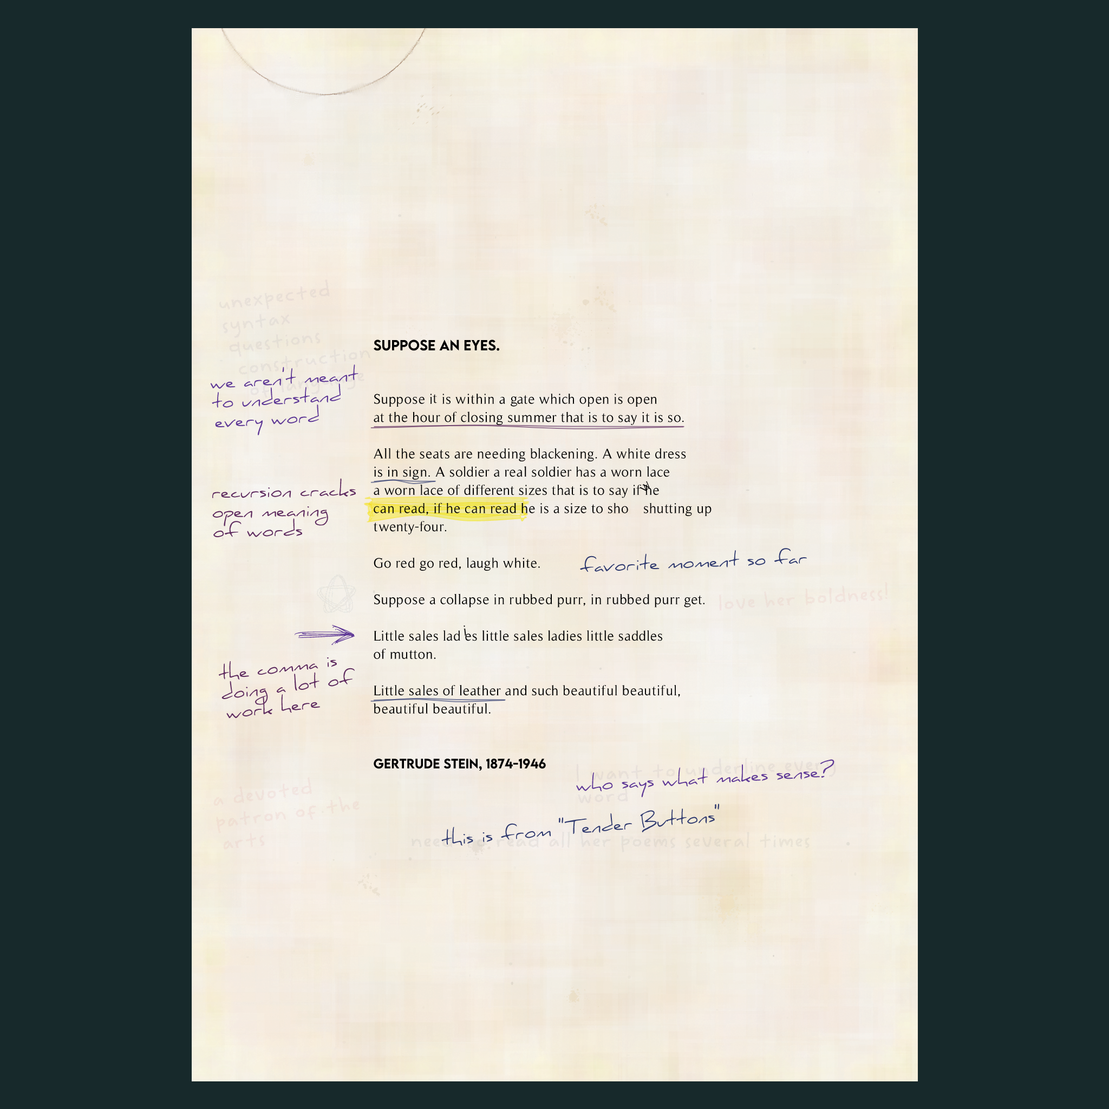 unexpected
syntax
questions
construction
SUPPOSE AN EYES.
we aren't meant
to understand
every word
Suppose it is within a gate which open is open
at the hour of closing summer that is to say it is so.
All the seats are needing blackening. A white dress
is in sign. A soldier a real soldier has a worn lace
a worn lace of different sizes that is to say if he
can read, if he can read he is a size to sho shutting up
twenty-four.
recursion cracks
open meaning
of words
Go red go red, laugh white.
favorite moment so far
Suppose a collapse in rubbed purr, in rubbed purr get.
love her boldness!
Little sales ladies little sales ladies little saddles
of mutton.
the comma is
doing a lot of
work here
Little sales of leather and such beautiful beautiful,
beautiful beautiful.
GERTRUDE STEIN, 1874-1946
I want to underline every
word
who says what makes sense?
a devoted
patron of the
arts
this is from "Tender Buttons"
need to read all her poems several times